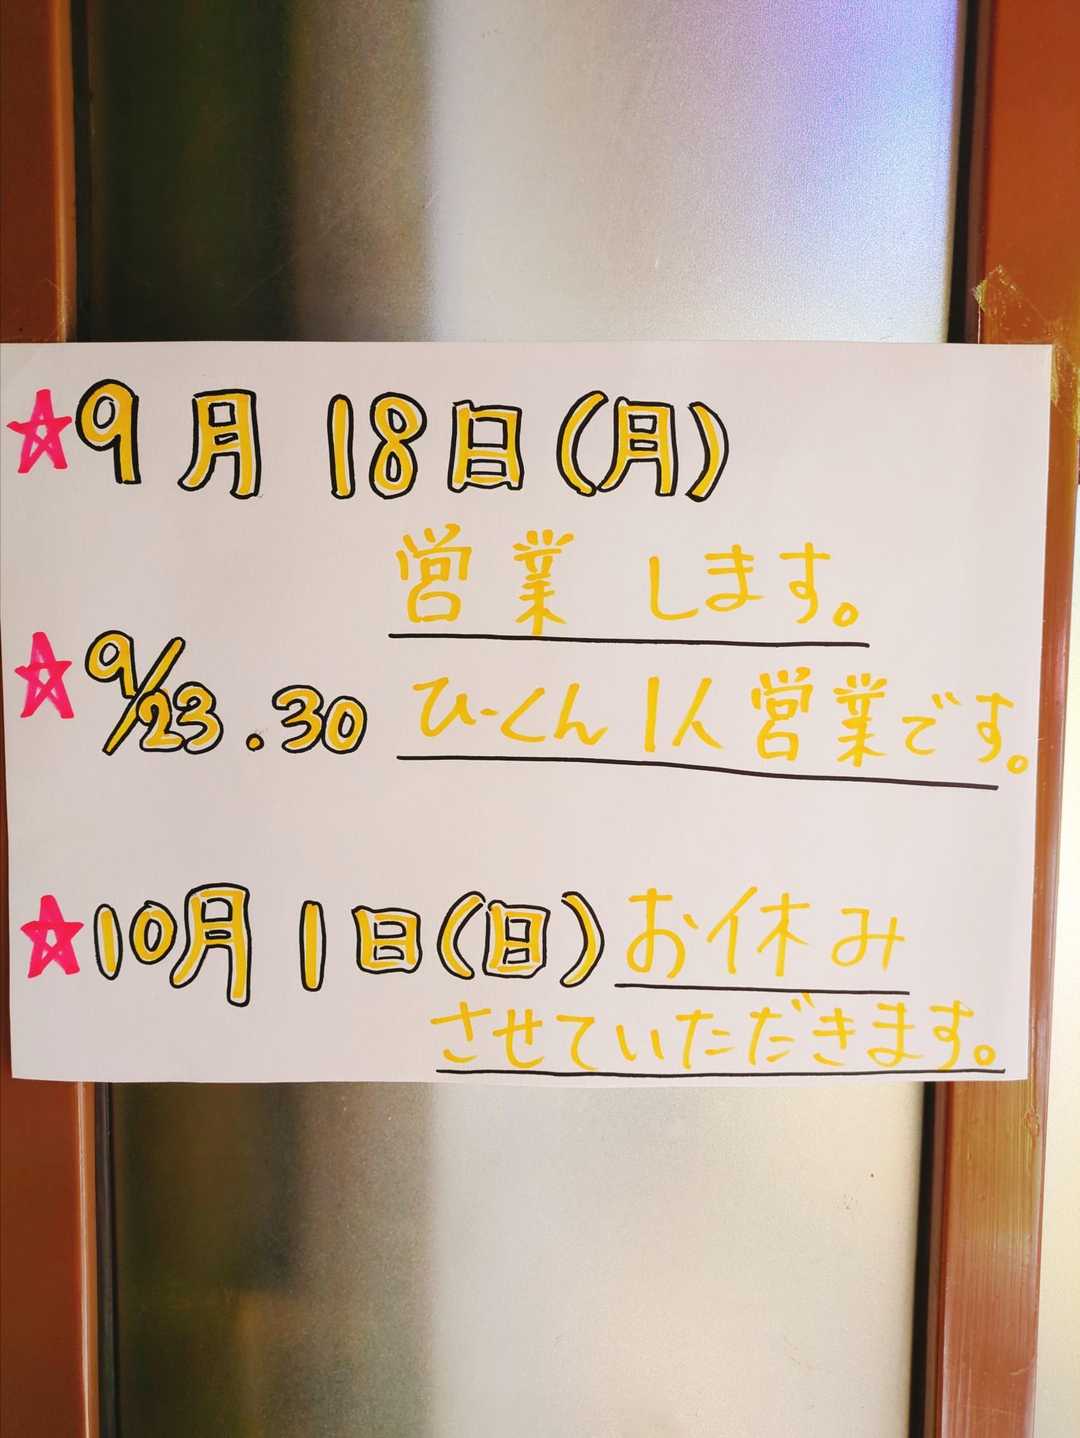 ☆9月18日(月)
営業します。
☆9/23.30 ひーくん1人営業です。
☆10月1日(日)お休み
させていただきます。